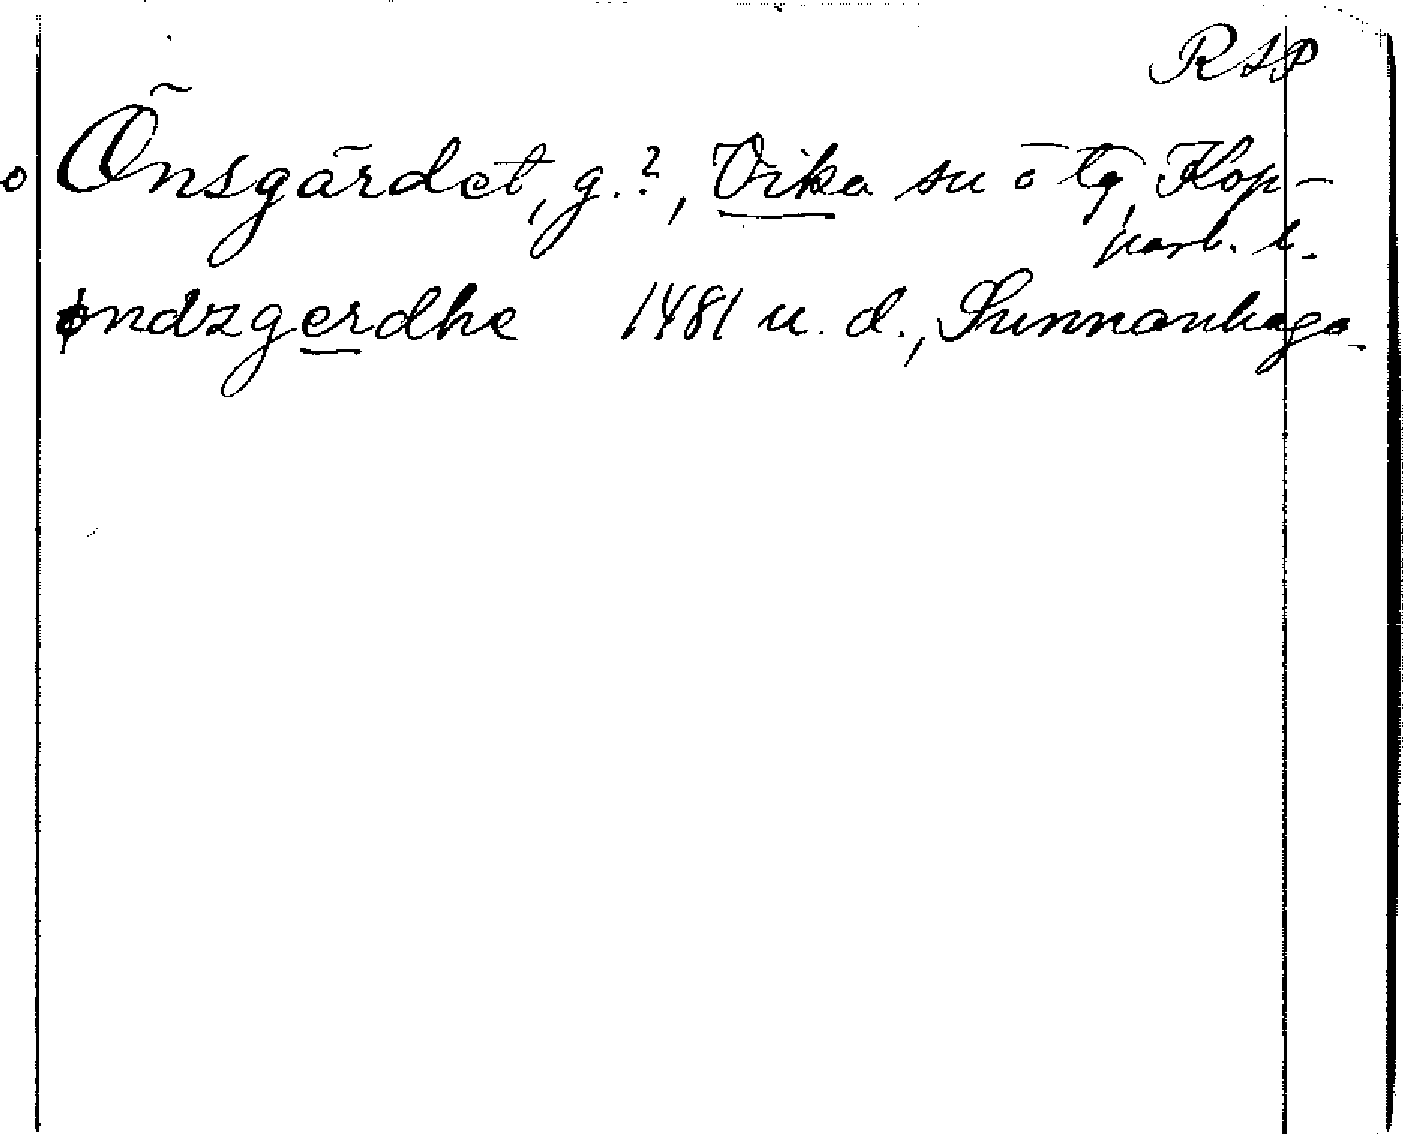 RAP
o Önsgärdet, g.?, Vika sn o tg, Kop-
parb. l.
øndzgerdhe 1481 u. d., Sunnanhaga